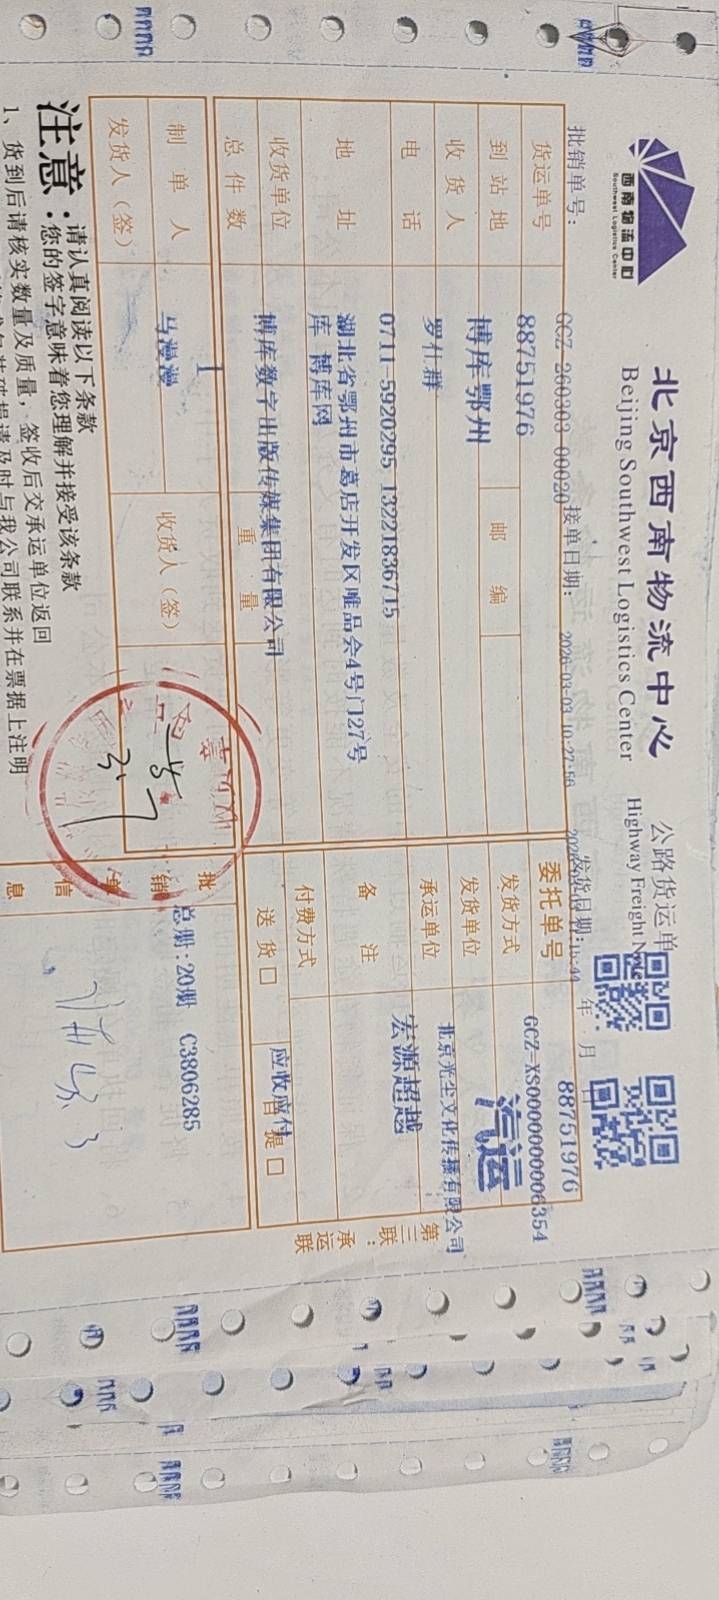 西南物流中心
Southwest Logistics Center
北京西南物流中心 公路货运单
Beijing Southwest Logistics Center Highway Freight
批销单号: GCZ-260303-00020 接单日期: 2026-03-03 10:27:56 发货日期: 年 月 日
货运单号 88751976 委托单号 88751976
GCZ=XS0000000006354
到站地 博库鄂州 邮编 发货方式 汽运
收货人 罗仕群 发货单位 北京光尘文化传播有限公司
电话 0711-5920295 13221836715 承运单位 宏源超越
地址 湖北省鄂州市葛店开发区唯品会4号门127号
库 博库网
备注
收货单位 博库数字出版传媒集团有限公司 付费方式 应收应付
总件数 1 重量 送货口 自提口
制单人 马漫漫 收货人(签) 批销单信息 总册:20册 C3806285
发货人(签)
第三联:承运联
注意: 请认真阅读以下条款
您的签字意味着您理解并接受该条款
1、货到后请核实数量及质量,签收后交承运单位返回
请及时与我公司联系并在票据上注明